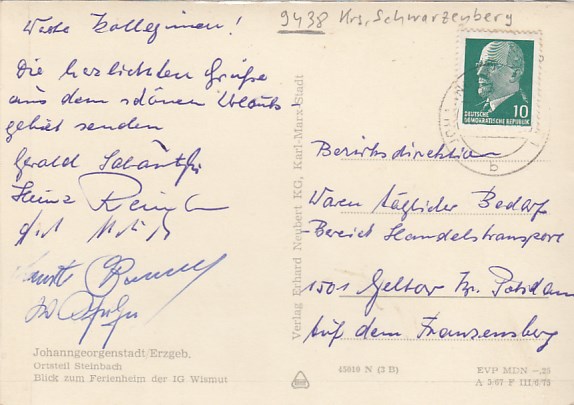 9438 Krs. Schwarzenberg
Werte Kolleginnen!
Die herzlichsten Grüße
aus dem schönen Urlaubs-
gebiet senden
Gerald
Heinz
10
DEUTSCHE
DEMOKRATISCHE REPUBLIK
b
Bezirksdirektion
Waren täglicher Bedarf
Bereich Handelstransport
1501 Geltow Kr. Potsdam
Auf dem Franzensberg
Verlag Erhard Neubert KG, Karl-Marx-Stadt
Johanngeorgenstadt/Erzgeb.
Ortsteil Steinbach
Blick zum Ferienheim der IG Wismut
45810 N (3 B)
EVP MDN -,25
A 3/67 P III/6/73